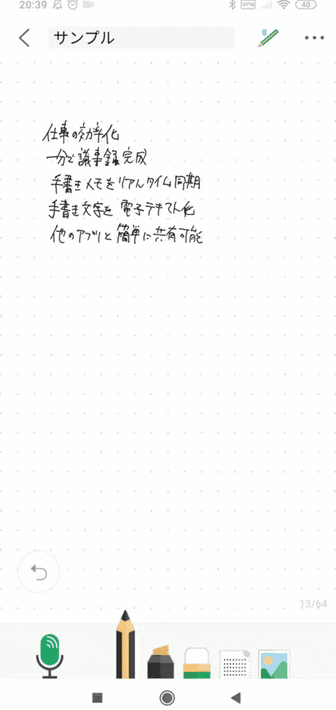 20:39 VPN 40
サンプル
仕事の効率化
一分で議事録完成
手書きメモをリアルタイム同期
手書き文字を電子テキスト化
他のアプリと簡単に共有可能
13/64